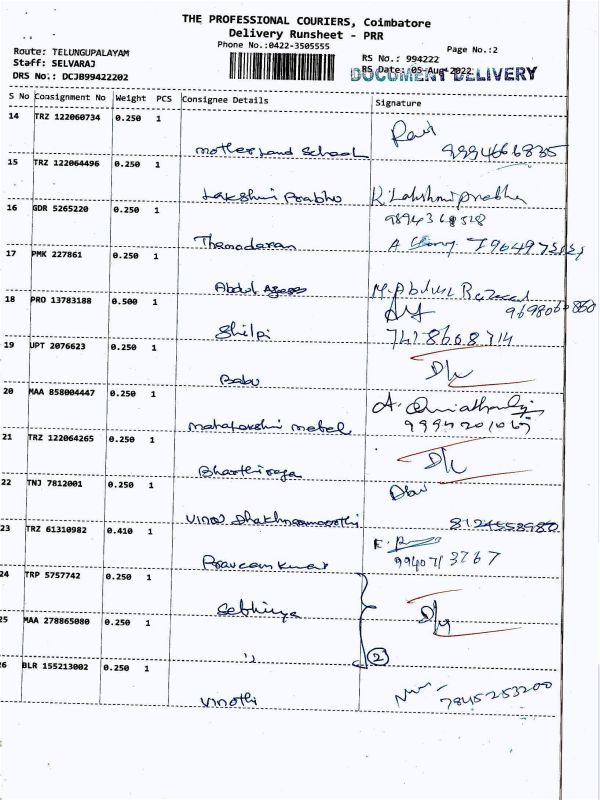 THE PROFESSIONAL COURIERS, Coimbatore
Delivery Runsheet - PRR
Phone No.:0422-3505555
Page No.:2
Route: TELUNGUPALAYAM
RS No.: 994222
Staff: SELVARAJ
RS Date: 05-Aug-2022
DOCUMENT DELIVERY
DRS No.: DCJB99422202
S No Consignment No Weight PCS Consignee Details Signature
14 TRZ 122060734 0.250 1
Ravi
Motherland School 9994666835
15 TRZ 122064496 0.250 1
Lakshmi Prabha K. Lakshmi prabha
16 GDR 5265220 0.250 1
9894368528
Thamodaran A
17 PMK 227861 0.250 1
Abdul M. Abdul
18 PRO 13783188 0.500 1
Shilpi 7418608714
19 UPT 2076623 0.250 1
Babu D/L
20 MAA 858004447 0.250 1
A.
mahalakshmi metal 9994201067
21 TRZ 122064265 0.250 1
Bharthiraja D/L
22 TNJ 7812001 0.250 1
Vinod 8124558980
23 TRZ 61310982 0.410 1
Praveen Kumar 9940713767
24 TRP 5757742 0.250 1
Sathiya D/L
25 MAA 278865080 0.250 1
,, 2
26 BLR 155213002 0.250 1
Vinothi 7845253200